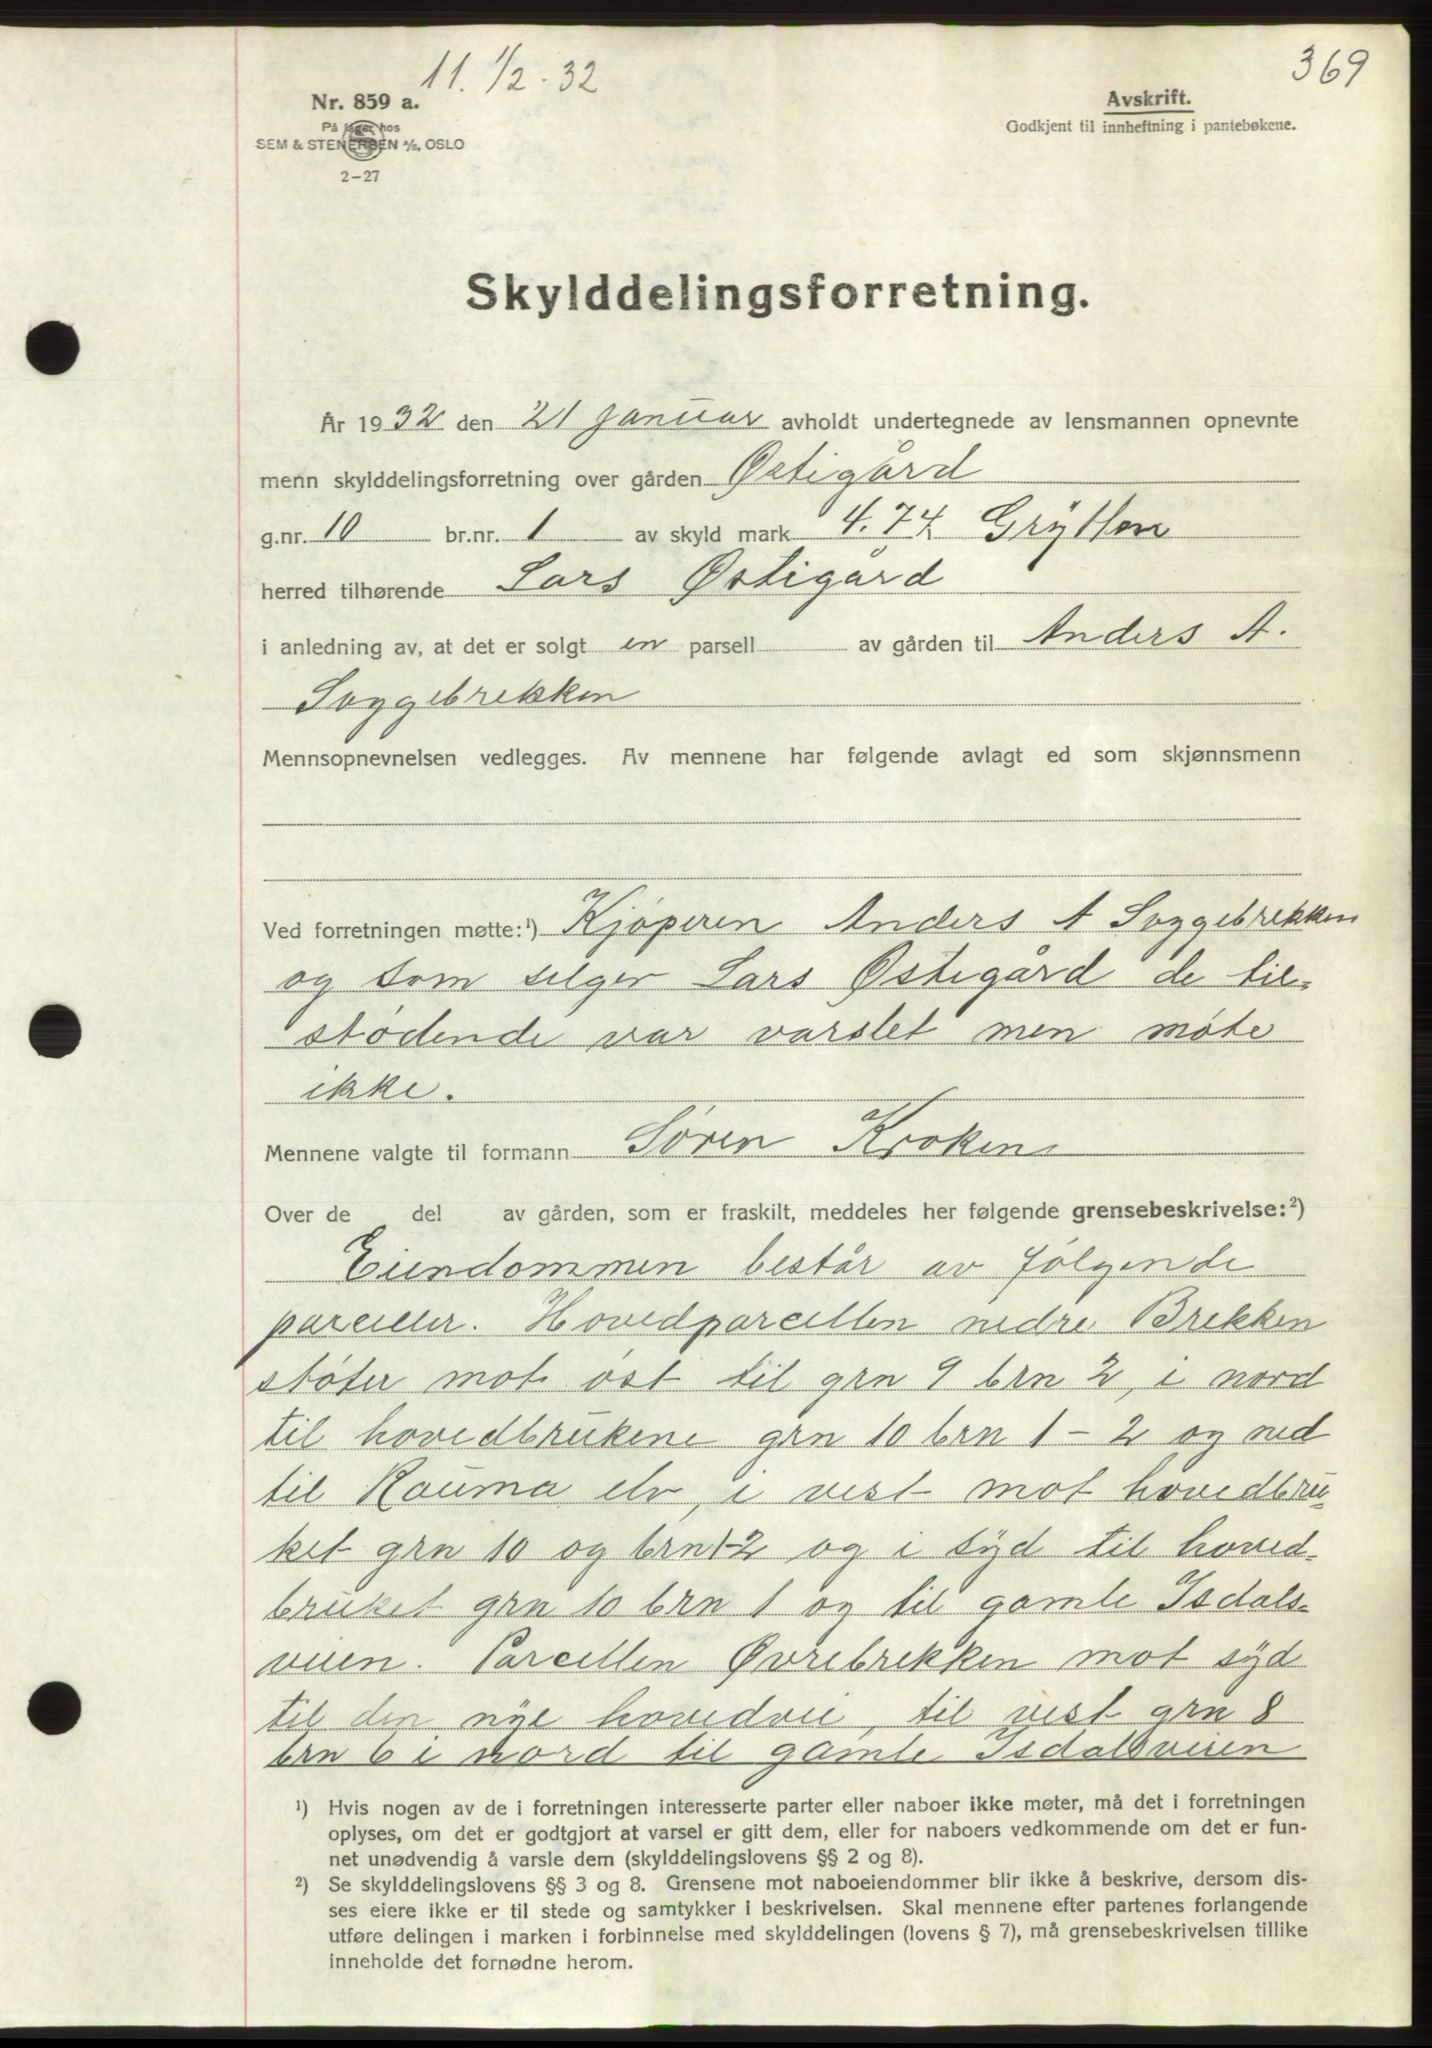 11. 1/2 - 32
369
Nr. 859 a.
På lager hos
SEM & STENERSEN A/S, OSLO
2–27
Avskrift.
Godkjent til innheftning i pantebøkene.
Skylddelingsforretning.
År 1932 den 21 januar avholdt undertegnede av lensmannen opnevnte
menn skylddelingsforretning over gården Østigård
g.nr. 10 br.nr. 1 av skyld mark 4.74 Grytten
herred tilhørende Lars Østigård
i anledning av, at det er solgt en parsell av gården til Anders A.
Soggebrekken
Mennsopnevnelsen vedlegges. Av mennene har følgende avlagt ed som skjønnsmenn
Ved forretningen møtte:¹) Kjøperen Anders A Soggebrekken
og som selger Lars Østegård de til-
stødende var varslet men møte
ikke.
Mennene valgte til formann Søren Kroken
Over de del av gården, som er fraskilt, meddeles her følgende grensebeskrivelse:²)
Eiendommen består av følgende
parceller. Hovedparcellen nedre Brekken
støter mot øst til grn 9 brn 2, i nord
til hovedbrukene grn 10 brn 1 - 2 og ned
til Rauma elv, i vest mot hovedbru-
ket grn 10 og brn 1-2 og i syd til hoved-
bruket grn 10 brn 1 og til gamle Isdals-
veien. Parcellen Øvrebrekken mot syd
til den nye hovedvei, til vest grn 8
brn 6 i nord til gamle Isdalsveien
¹) Hvis nogen av de i forretningen interesserte parter eller naboer ikke møter, må det i forretningen
oplyses, om det er godtgjort at varsel er gitt dem, eller for naboers vedkommende om det er fun-
net unødvendig å varsle dem (skylddelingslovens §§ 2 og 8).
²) Se skylddelingslovens §§ 3 og 8. Grensene mot naboeiendommer blir ikke å beskrive, dersom dis-
ses eiere ikke er til stede og samtykker i beskrivelsen. Skal mennene efter partenes forlangende
utføre delingen i marken i forbinnelse med skylddelingen (lovens § 7), må grensebeskrivelsen tillike
inneholde det fornødne herom.